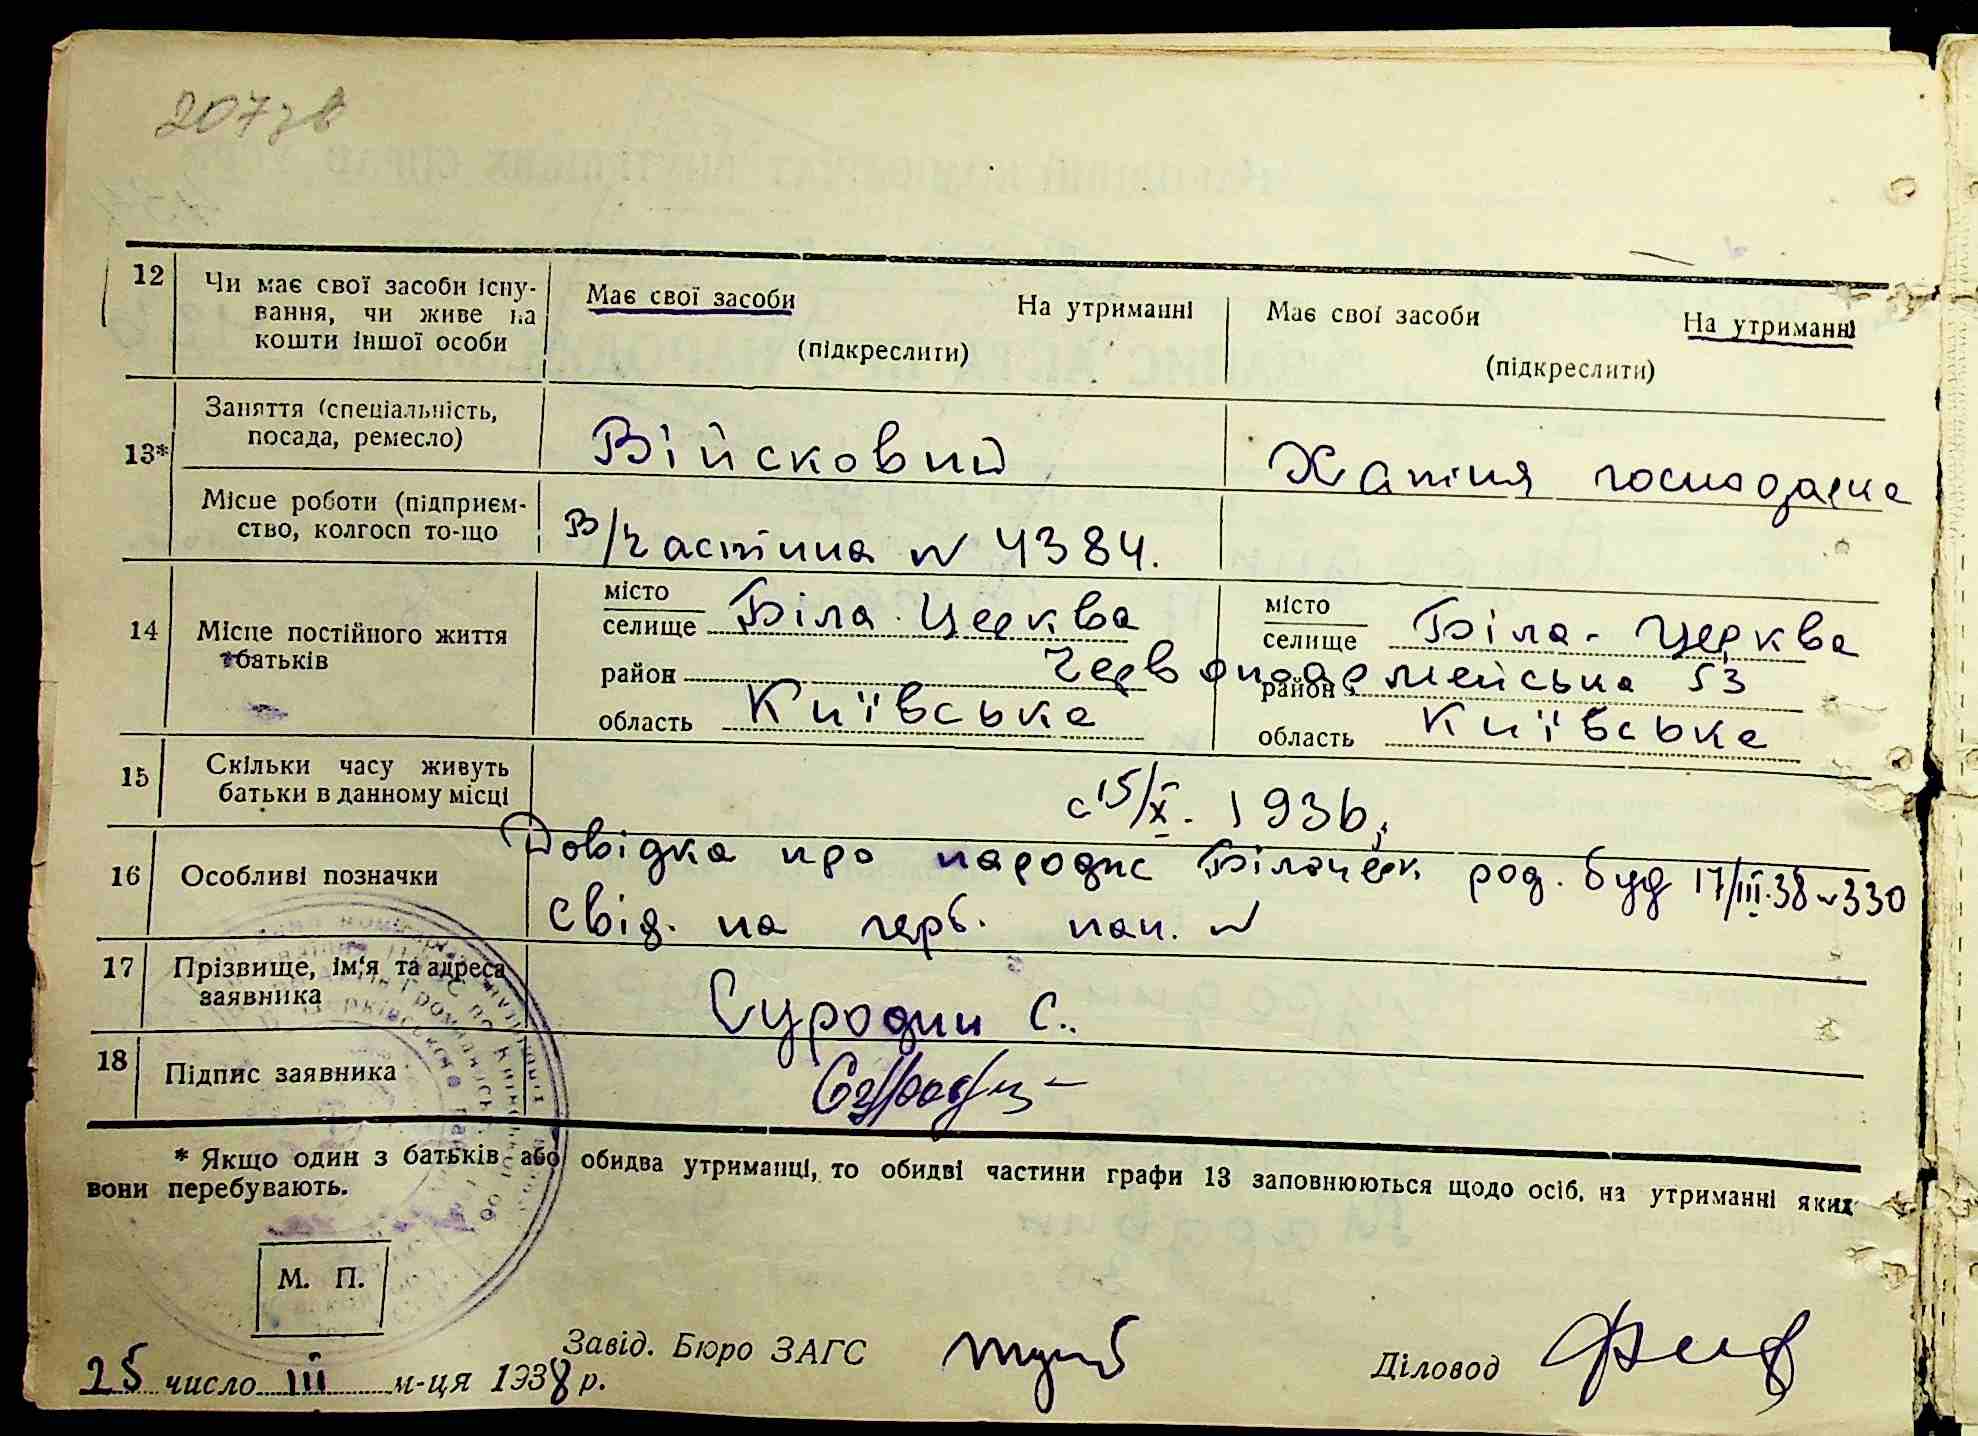 207зв
12 Чи має свої засоби існу- Має свої засоби На утриманні Має свої засоби На утриманні
вання, чи живе на
кошти іншої особи (підкреслити) (підкреслити)
13* Заняття (спеціальність,
посада, ремесло) Військовий Хатіня господарка
Місце роботи (підприєм-
ство, колгосп то-що В/частина № 4384.
14 Місце постійного життя
батьків
місто
селище Біла Церква місто
селище Біла-Церква
район Червоноармейська 53 район
область Київська область Київська
15 Скільки часу живуть
батьки в данному місці с 15/X. 1936,
16 Особливі позначки Довідка про народж Білоцерк. род. буд 17/III.38 № 330
Свід. на герб. пап. №
17 Прізвище, ім'я та адреса
заявника Суродин С.
18 Підпис заявника
* Якщо один з батьків або обидва утриманці, то обидві частини графи 13 заповнюються щодо осіб, на утриманні яких
вони перебувають.
М. П.
Завід. Бюро ЗАГС Діловод
25 число III м-ця 1938 р.